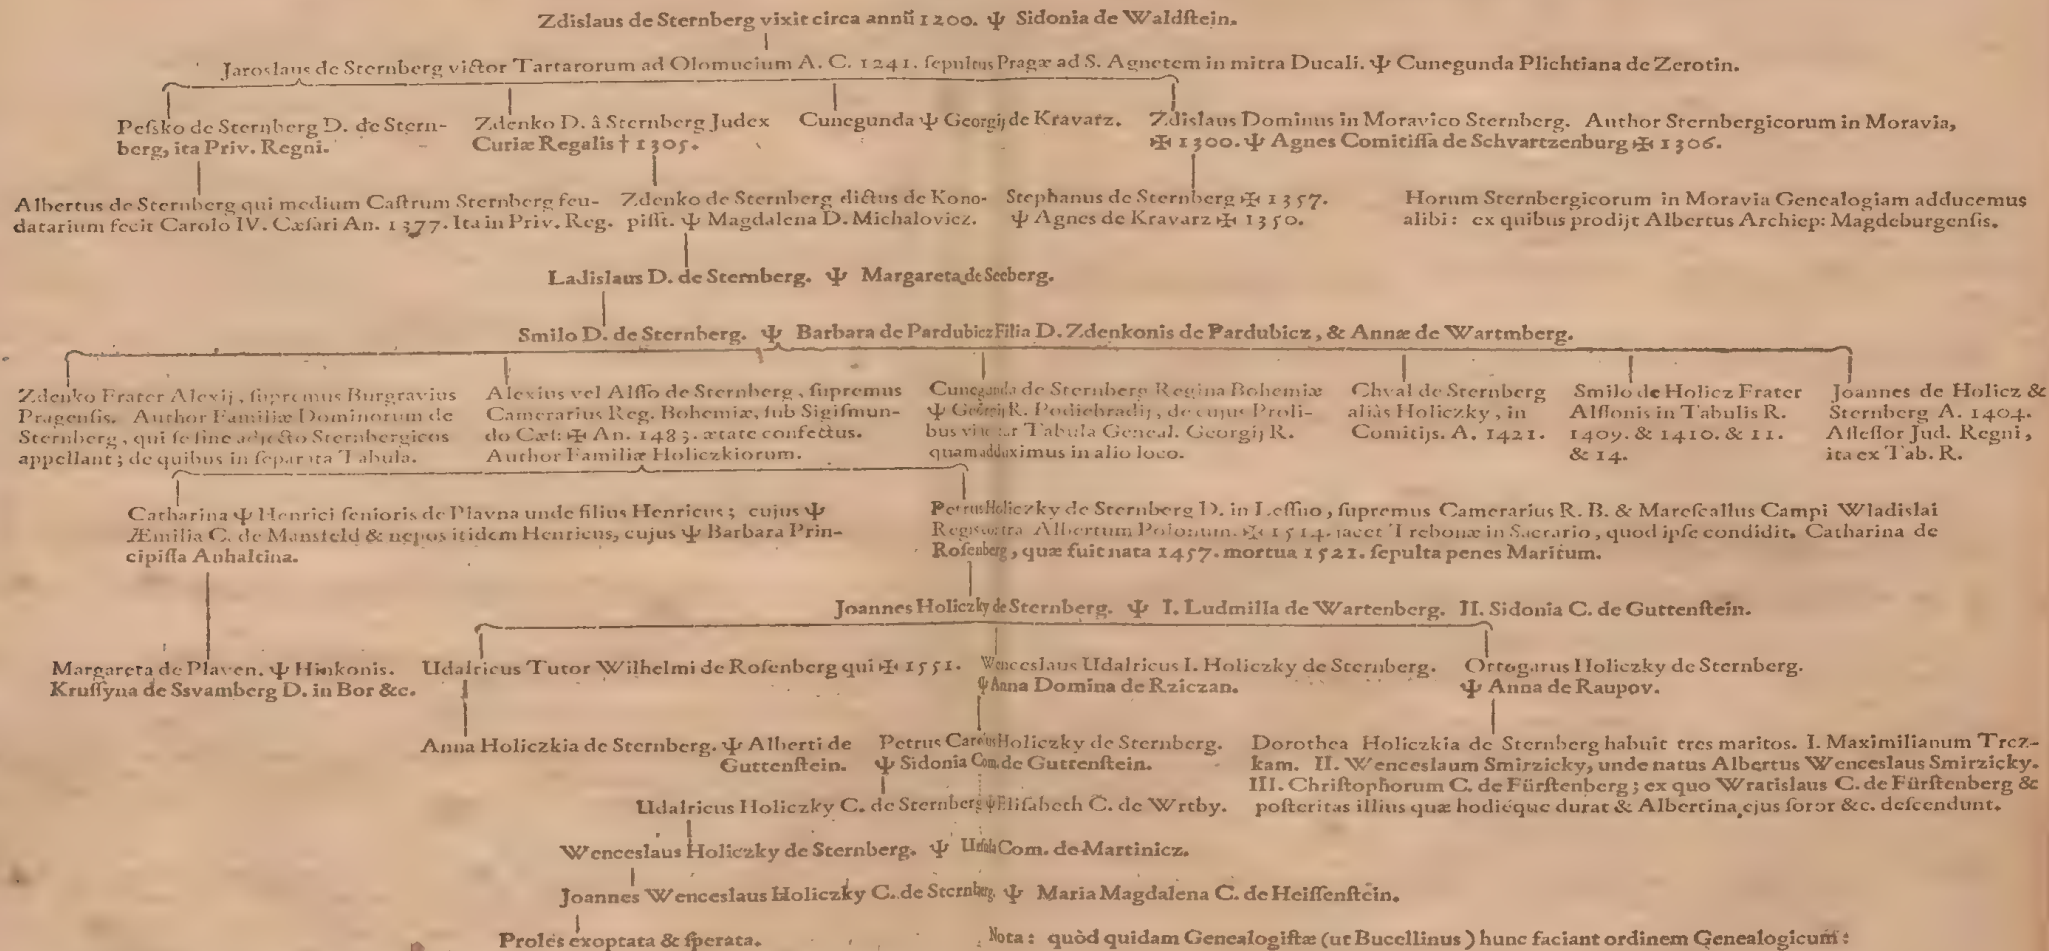 Zdislaus de Sternberg vixit circa annũ 1200. Ψ Sidonia de Waldſtein.
Jaroslaus de Sternberg victor Tartarorum ad Olomucium A. C. 1241. ſepultus Pragæ ad S. Agnetem in mitra Ducali. Ψ Cunegunda Plichtiana de Zerotin.
Peſsko de Sternberg D. de Stern-
berg, ita Priv. Regni.
Zdenko D. â Sternberg Judex
Curiæ Regalis † 1305.
Cunegunda Ψ Georgij de Kravarz.
Zdislaus Dominus in Moravico Sternberg. Author Sternbergicorum in Moravia,
✠ 1300. Ψ Agnes Comitiſſa de Schvartzenburg ✠ 1306.
Albertus de Sternberg qui medium Caſtrum Sternberg feu-
datarium fecit Carolo IV. Cæſari An. 1377. Ita in Priv. Reg.
Zdenko de Sternberg dictus de Kono-
piſſt. Ψ Magdalena D. Michalovicz.
Stephanus de Sternberg ✠ 1357.
Ψ Agnes de Kravarz ✠ 1350.
Horum Sternbergicorum in Moravia Genealogiam adducemus
alibi: ex quibus prodijt Albertus Archiep: Magdeburgenſis.
Ladislaus D. de Sternberg. Ψ Margareta de Seeberg.
Smilo D. de Sternberg. Ψ Barbara de Pardubicz Filia D. Zdenkonis de Pardubicz, & Annæ de Wartmberg.
Zdenko Frater Alexij, ſupremus Burgravius
Pragenſis. Author Familiæ Dominorum de
Sternberg, qui ſe ſine adjecto Sternbergicos
appellant; de quibus in ſeparata Tabula.
Alexius vel Alſſo de Sternberg, ſupremus
Camerarius Reg. Bohemiæ, ſub Sigiſmun-
do Cæſ: ✠ An. 1483. ætate confectus.
Author Familiæ Holiczkiorum.
Cunegunda de Sternberg Regina Bohemiæ
Ψ Georgij R. Podiebradij, de cujus Proli-
bus videtur Tabula Geneal. Georgij R.
quam adduximus in alio loco.
Chval de Sternberg
aliàs Holiczky, in
Comitijs. A. 1421.
Smilo de Holicz Frater
Alſſonis in Tabulis R.
1409. & 1410. & 11.
& 14.
Joannes de Holicz &
Sternberg A. 1404.
Aſſeſſor Jud. Regni,
ita ex Tab. R.
Catharina Ψ Henrici ſenioris de Plavna unde filius Henricus; cujus Ψ
Æmilia C. de Mansfeld & nepos itidem Henricus, cujus Ψ Barbara Prin-
cipiſſa Anhaltina.
Petrus Holiczky de Sternberg D. in Leſſno, ſupremus Camerarius R. B. & Mareſcallus Campi Wladislai
Regis contra Albertum Polonum. ✠ 1514. jacet Trebonæ in Sacrario, quod ipſe condidit. Catharina de
Roſenberg, quæ fuit nata 1457. mortua 1521. ſepulta penes Maritum.
Joannes Holiczky de Sternberg. Ψ I. Ludmilla de Wartenberg. II. Sidonia C. de Guttenſtein.
Margareta de Plaven. Ψ Hinkonis.
Kruſſyna de Ssvamberg D. in Bor &c.
Udalricus Tutor Wilhelmi de Roſenberg qui ✠ 1551.
Wenceslaus Udalricus I. Holiczky de Sternberg.
Ψ Anna Domina de Rziczan.
Ottogarus Holiczky de Sternberg.
Ψ Anna de Raupov.
Anna Holiczkia de Sternberg. Ψ Alberti de
Guttenſtein.
Petrus Carolus Holiczky de Sternberg.
Ψ Sidonia Com. de Guttenſtein.
Dorothea Holiczkia de Sternberg habuit tres maritos. I. Maximilianum Trcz-
kam. II. Wenceslaum Smirzicky, unde natus Albertus Wenceslaus Smirzicky.
III. Chriſtophorum C. de Fürſtenberg; ex quo Wratislaus C. de Fürſtenberg &
poſteritas illius quæ hodieque durat & Albertina ejus ſoror &c. deſcendunt.
Udalricus Holiczky C. de Sternberg Ψ Eliſabeth C. de Wrtby.
Wenceslaus Holiczky de Sternberg. Ψ Urſula Com. de Martinicz.
Joannes Wenceslaus Holiczky C. de Sternberg. Ψ Maria Magdalena C. de Heiſſenſtein.
Proles exoptata & ſperata.
Nota: quòd quidam Genealogiſtæ (ut Bucellinus) hunc faciant ordinem Genealogicum: